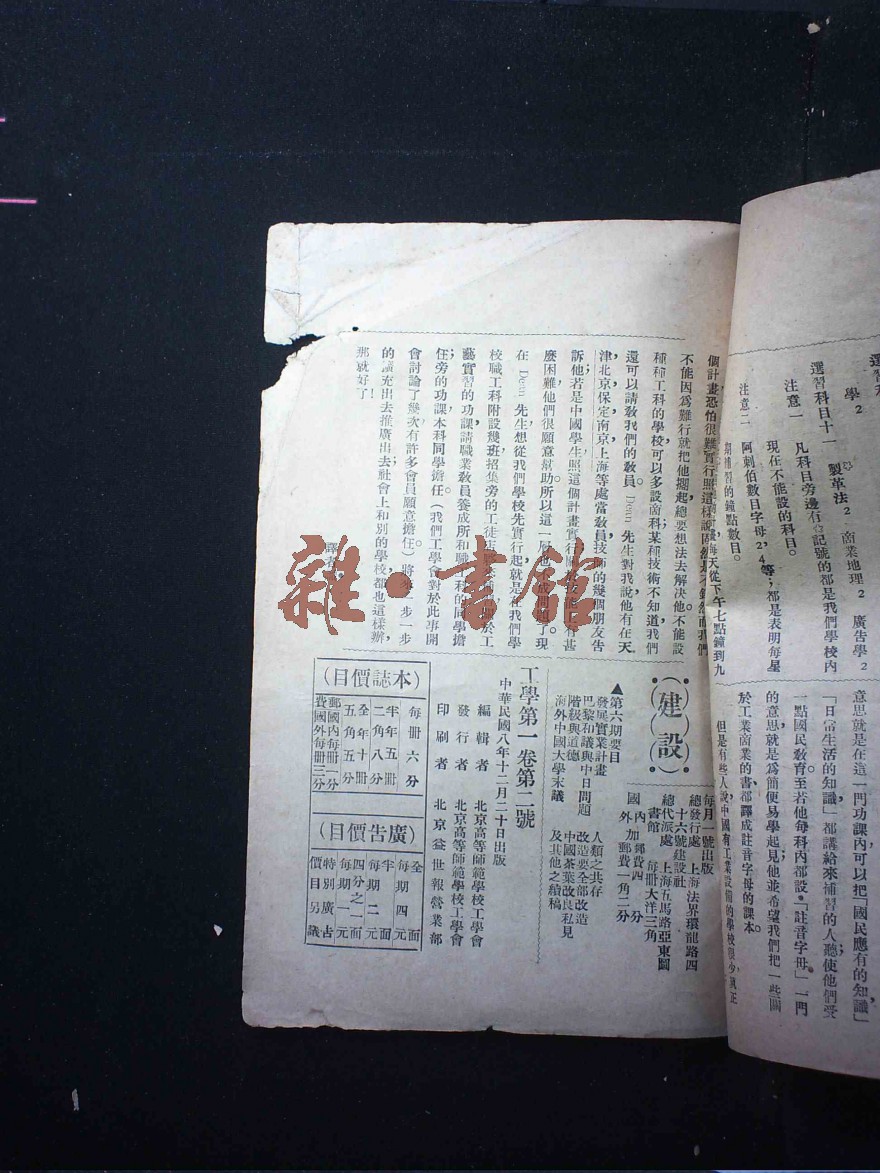 學 2
選習科目十一 製革法 2 商業地理 2 廣告學 2
注意一 凡科目旁邊有☆記號的都是我們學校內
現在不能設的科目。
注意二 阿刺伯數目字母2,4等;都是表明每星
期補習的鐘點數目。
意思就是在這一門功課內可以把「國民應有的知識」
「日常生活的知識」都講給來補習的人聽使他們受
一點國民教育至若他每科內都設「註音字母」一門
的意思就是為簡便易學起見他並希望我們把一些關
於工業商業的書都譯成註音字母的課本。
但是有些人說,中國有工業設備的學校很少眞正
每天從下午七點鐘到九
個計畫恐怕很難實行照這樣說
不能因為難行就把他擱起總要想法去解決他不能設
種種工科的學校可以多設商科某種技術不知道我們
還可以請敎我們的敎員。Dean 先生對我說他有在天
津北京保定南京上海等處當敎員技師的幾個朋友告
訴他若是中國學生照這個計畫實行
麼困難他們很願意幫助所以這一層也 現
在 Dean 先生想從我們學校先實行起就是在我們學
校職工科附設幾班招集旁的工徒 於工
藝實習的功課請職業敎員養成所和職工科的同學擔
任;旁的功課本科同學擔任。(我們工學會對於此事開
會討論了幾次有許多會員願意擔任)將來一步一步
的擴充出去推廣出去社會上和別的學校都也這樣辦
那就好了!
譯者
雜·書館
建設
每月一號出版
總發行處 上海法界環龍路四
十六號建設社
總代派處 上海五馬路亞東圖
書館 每冊大洋三角
國內加郵費四分
國外加郵費一角二分
▲第六期要目
發展實業計畫 人類之共存
巴黎和議與中日問題 改造要全部改造
階級與道德 中國茶葉改良私見
海外中國大學末議 及其他之續稿
工學第一卷第二號
中華民國八年十二月二十日出版
編輯者 北京高等師範學校工學會
發行者 北京高等師範學校工學會
印刷者 北京益世報營業部
(本誌價目)
每冊六分
半年五冊二角八分
全年十冊五角五分
郵費國內每冊一分
國外每冊三分
(廣告價目)
全面每期四元
半面每期二元
四分之一面每期一元
特別廣告價目另議